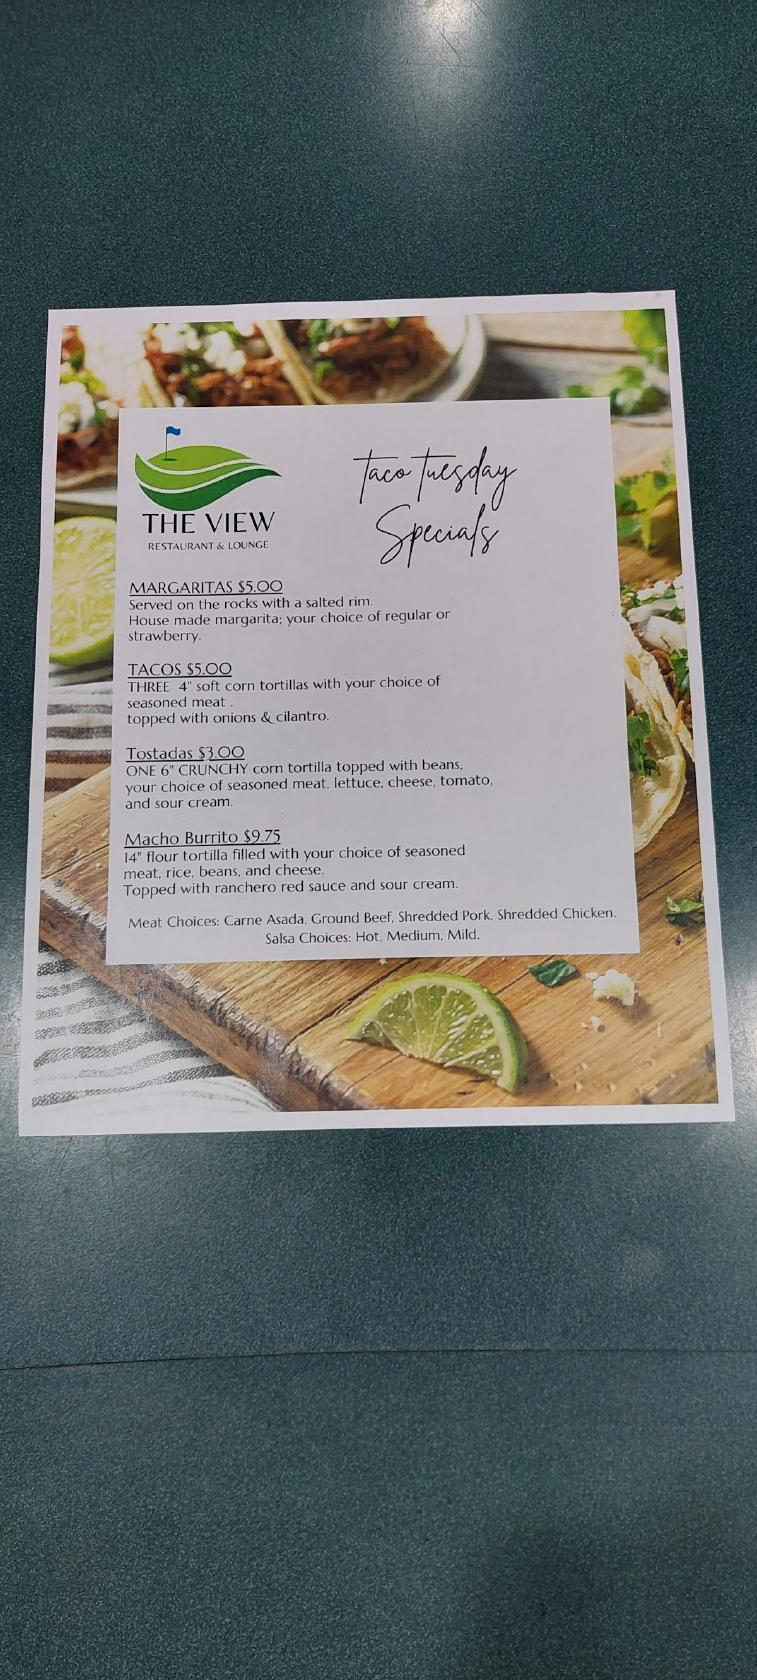 THE VIEW
RESTAURANT & LOUNGE
Taco Tuesday
Specials
MARGARITAS $5.00
Served on the rocks with a salted rim.
House made margarita; your choice of regular or
strawberry.
TACOS $5.00
THREE 4" soft corn tortillas with your choice of
seasoned meat .
topped with onions & cilantro.
Tostadas $3.00
ONE 6" CRUNCHY corn tortilla topped with beans,
your choice of seasoned meat, lettuce, cheese, tomato,
and sour cream.
Macho Burrito $9.75
14" flour tortilla filled with your choice of seasoned
meat, rice, beans, and cheese.
Topped with ranchero red sauce and sour cream.
Meat Choices: Carne Asada, Ground Beef, Shredded Pork, Shredded Chicken.
Salsa Choices: Hot, Medium, Mild.